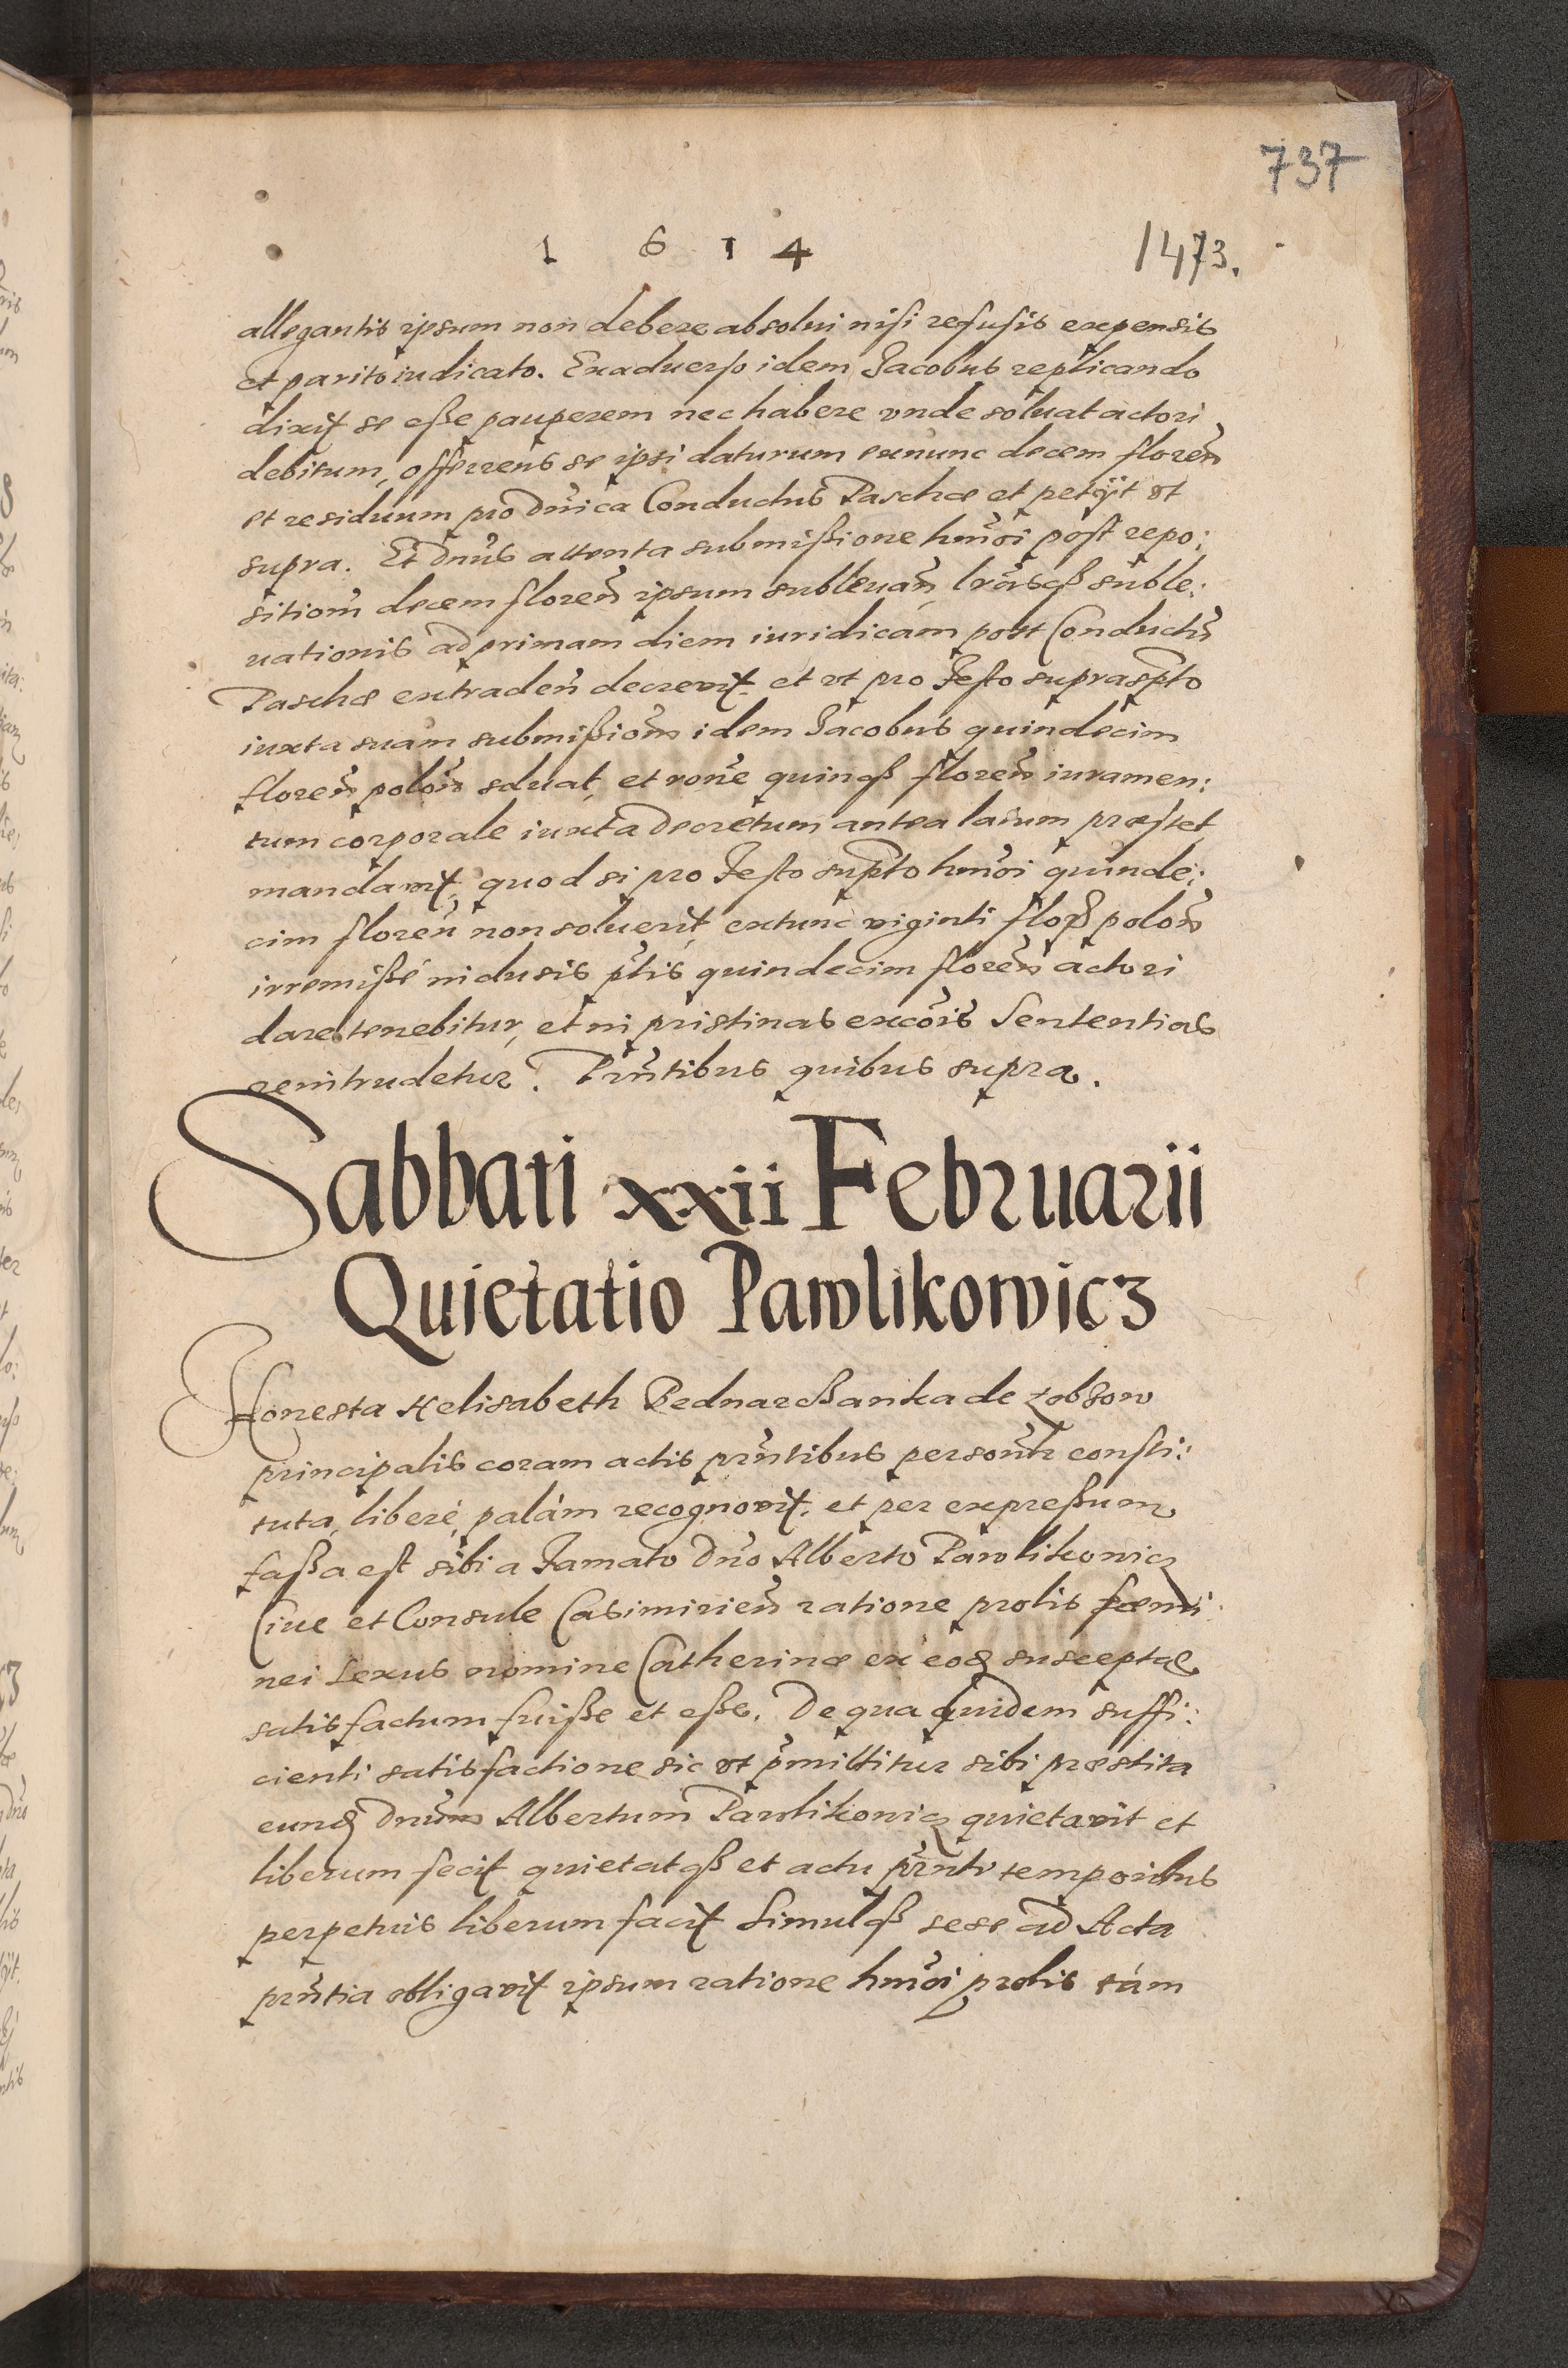 737
1 6 1 4
1473.
allegantis ipsum non debere absolui nisi refusis expensis
et parito iudicato. Exaduerso idem Jacobus replicando
dixit se eße pauperem nec habere vnde soluat actori
debitum, offerens se ipsi daturum exnunc decem floren̄
et residuum pro Dnica Conductus Paschæ et petijt vt
supra. Et Dnus attenta submißione hmōi post repo:
sitiōm decem floren̄ ipsum subleuan̄ lrasqß suble:
uationis ad primam diem iuridicam post Conductū
Paschæ extraden̄ decrevit et vt pro Festo suprasp̄to
iuxta suam submißiōm idem Jacobus quindecim
floren̄ polōn soluat, et rone quinqß floren̄ iuramen:
tum corporale iuxta Decretum antea latum præstet
mandavit, quod si pro Festo sup̄to hmōi quinde:
cim floren̄ non soluerit, extunc viginti flor̄ polōn
irremißé inclusis p̄tis quindecim floren̄ actori
dare tenebitur, et in pristinas excōis Sententias
reintrudetur. Prn̄tibus quibus supra.
Sabbati xxii Februarii
Quietatio Pawlikowicz
Honesta Helisabeth Bednarcßanka de Zobzow
principalis coram actis prn̄tibus persontr consti:
tuta, liberé, palám recognovit, et per expreßum
faßa est sibi a Famato Dno Alberto Pawlikowicz
Ciue et Consule Casimirien̄ ratione prolis fœmi:
nei Sexus nomine Catherinæ ex eod suscepta
satisfactum fuiße et eße. De qua quidem suffi:
cienti satisfactione sic vt p̄mittitur sibi præstita
eund Dnum Albertum Pawlikowicz quietavit et
liberum fecit quietatqß et actu prn̄ti temporibus
perpetuis liberum facit Simulqß sese ad Acta
prn̄tia obligavit ipsum ratione hmōi prolis tám